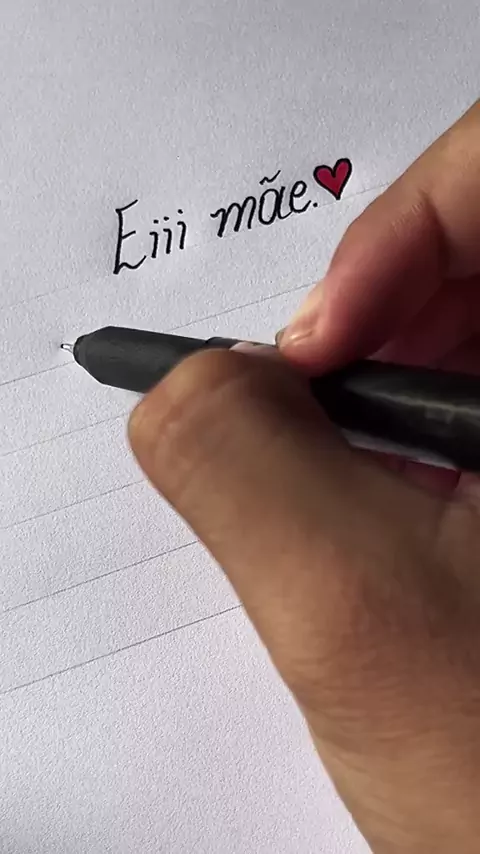 Eiii mãe.❤